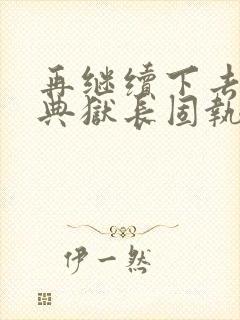 再继续下去
典獄长固執
伊一然